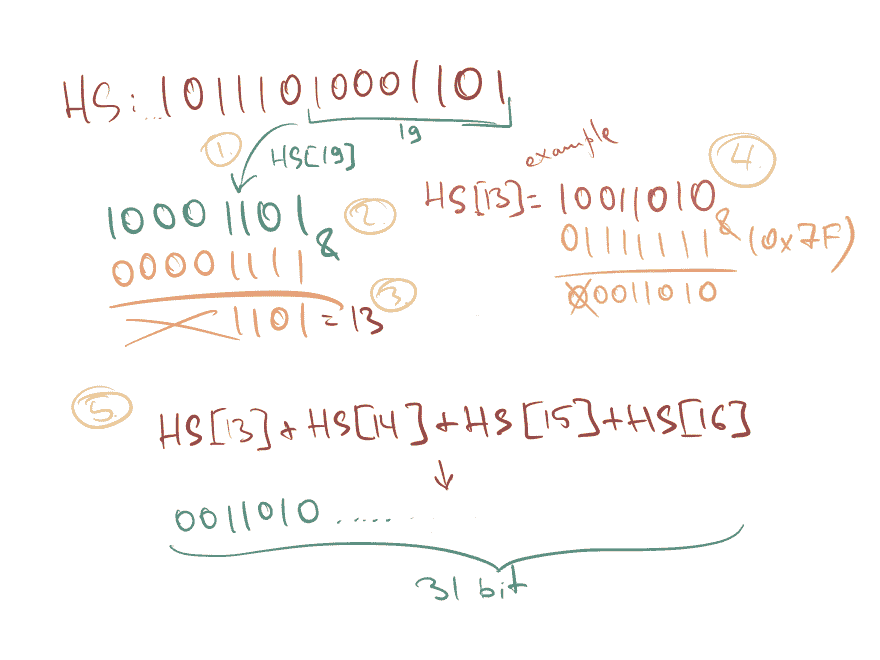 HS: ...10111010001101
19
1.
HS[19]
10001101 &
2.
00001111
1101 = 13
3.
example
4.
HS[13] = 10011010 &
01111111 (0x7F)
00011010
5.
HS[13] + HS[14] + HS[15] + HS[16]
0011010 ......
31 bit